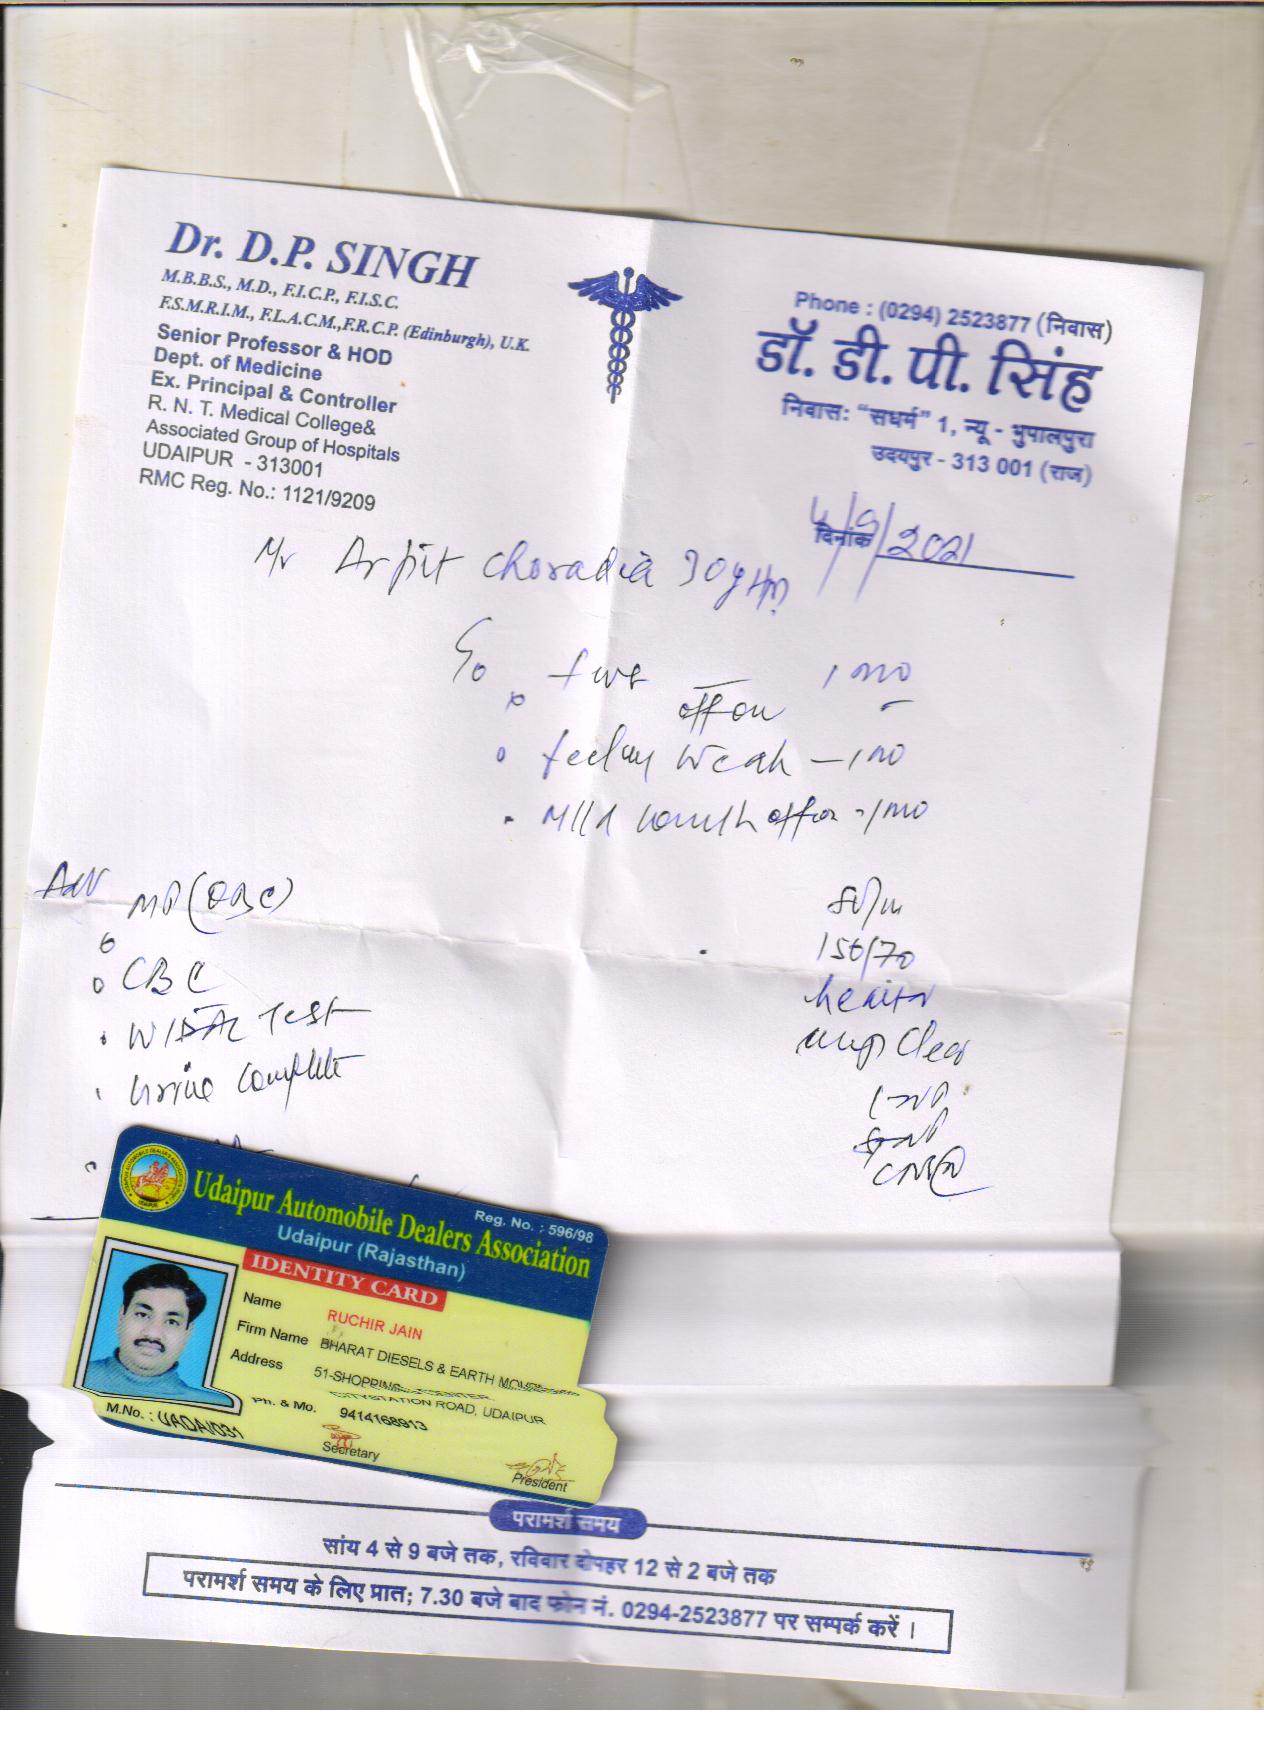 Dr. D.P. SINGH
M.B.B.S., M.D., F.I.C.P., F.I.S.C.
F.S.M.R.I.M., F.L.A.C.M.,F.R.C.P. (Edinburgh), U.K.
Senior Professor & HOD
Dept. of Medicine
Ex. Principal & Controller
R. N. T. Medical College&
Associated Group of Hospitals
UDAIPUR - 313001
RMC Reg. No.: 1121/9209
Phone : (0294) 2523877 (निवास)
डॉ. डी. पी. सिंह
निवास: “सधर्म” 1, न्यू - भुपालपुरा
उदयपुर - 313 001 (राज)
दिनांक 4/9/2021
Mr Arpit Choradia 30y
off on
feeling weak - 1 mo
Mild off on - 1 mo
Adv
MP (QBC)
CBC
WIDAL Test
Urine Complete
150/70
heart
clear
Udaipur Automobile Dealers Association
Reg. No. : 596/98
Udaipur (Rajasthan)
IDENTITY CARD
Name RUCHIR JAIN
Firm Name BHARAT DIESELS & EARTH
Address 51-SHOPPING CENTER,
CITYSTATION ROAD, UDAIPUR
Ph. & Mo. 9414168913
M.No. : UADA/031
Secretary
President
परामर्श समय
सांय 4 से 9 बजे तक, रविवार दोपहर 12 से 2 बजे तक
परामर्श समय के लिए प्रात; 7.30 बजे बाद फोन नं. 0294-2523877 पर सम्पर्क करें ।